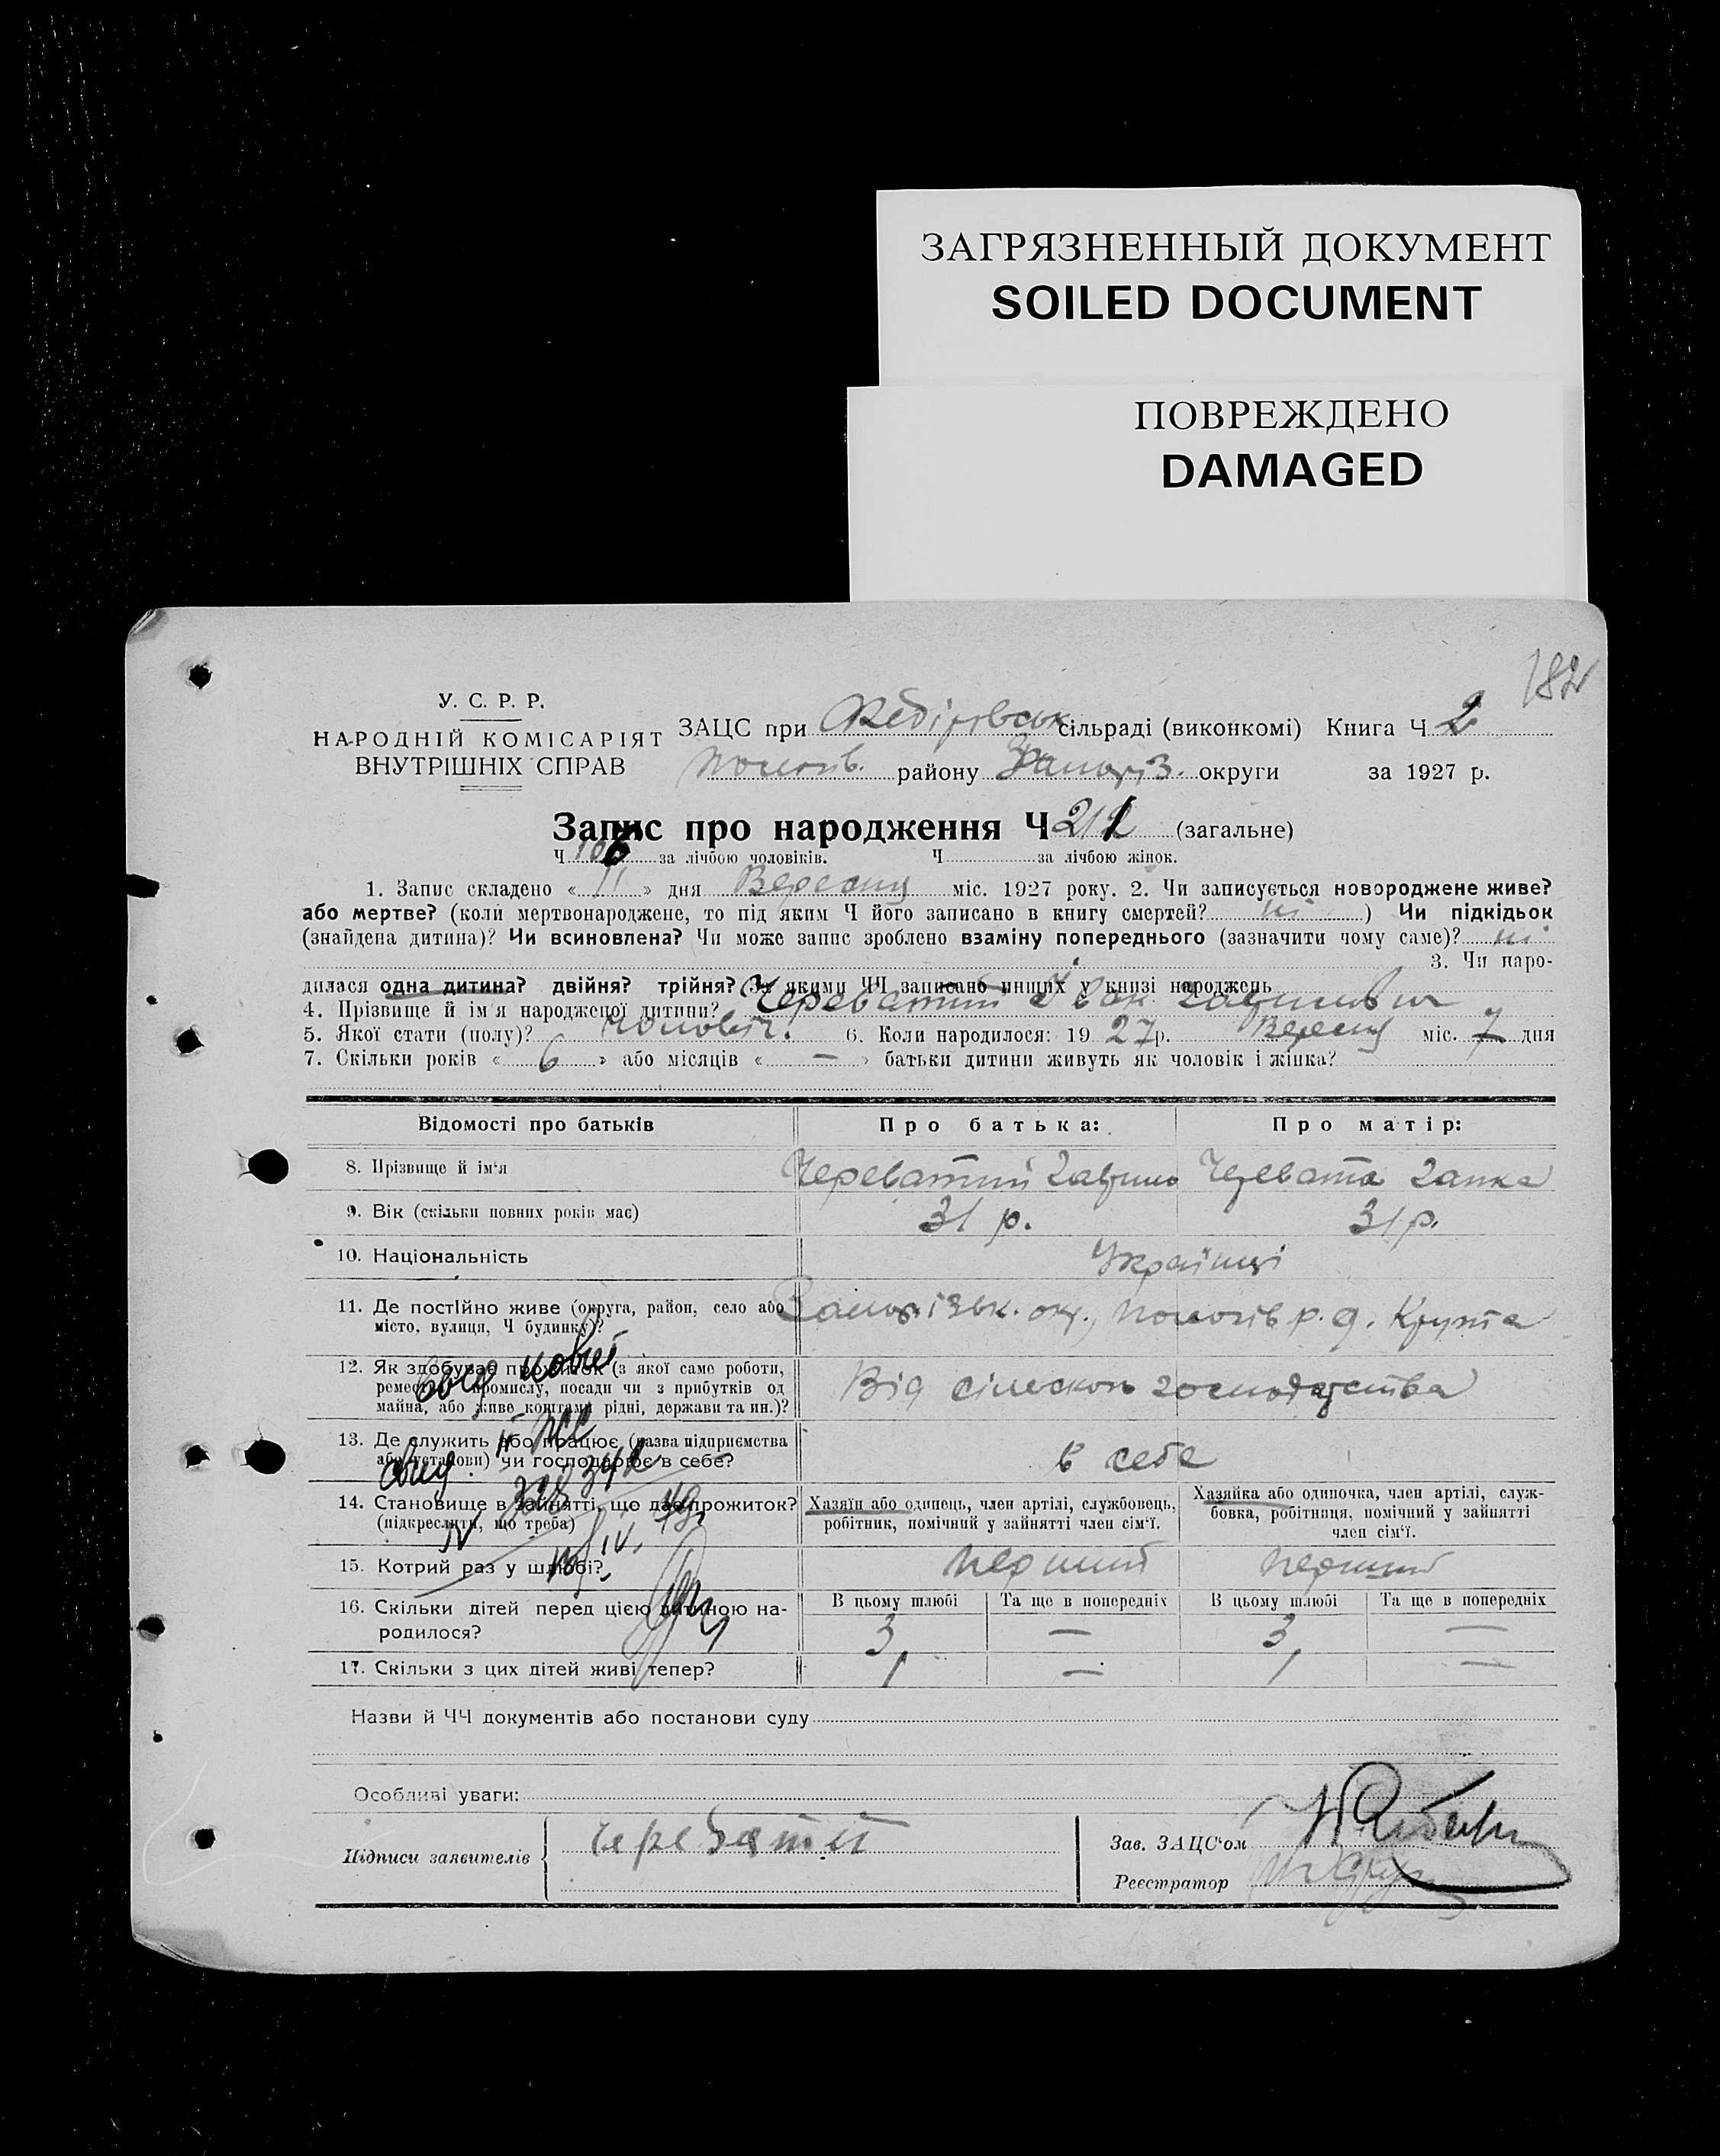 ЗАГРЯЗНЕННЫЙ ДОКУМЕНТ
SOILED DOCUMENT
ПОВРЕЖДЕНО
DAMAGED
182
У. С. Р. Р.
НАРОДНІЙ КОМІСАРІЯТ
ВНУТРІШНІХ СПРАВ
ЗАЦС при сільраді (виконкомі) Книга Ч 2
Пологів. району Запоріз. округи за 1927 р.
Запис про народження Ч 212 (загальне)
Ч 106 за лічбою чоловіків. Ч за лічбою жінок.
1. Запис складено « 11 » дня Вересня міс. 1927 року. 2. Чи записується новороджене живе?
або мертве? (коли мертвонароджене, то під яким Ч його записано в книгу смертей? ні ) Чи підкідьок
(знайдена дитина)? Чи всиновлена? Чи може запис зроблено взаміну попереднього (зазначити чому саме)? ні
3. Чи наро-
дилася одна дитина? двійня? трійня? За якими ЧЧ записано инших у книзі народжень
4. Прізвище й ім'я народженої дитини? Череватий Іван Гаврилович
5. Якої стати (полу)? чоловіч. 6. Коли народилося: 19 27 р. Вересня міс. 7 дня
7. Скільки років « 6 » або місяців « — » батьки дитини живуть як чоловік і жінка?
Відомості про батьків Про батька: Про матір:
8. Прізвище й ім'я Череватий Гаврило Черевата Ганка
9. Вік (скільки повних років має) 31 р. 31 р.
10. Національність Українці
11. Де постійно живе (округа, район, село або Запорізьк. окр., Пологів р. д. Крута
місто, вулиця, Ч будинку)?
12. Як здобуває прожиток (з якої саме роботи,
ремесла, промислу, посади чи з прибутків од Від сільського господарства
майна, або живе коштами рідні, держави та ин.)?
13. Де служить або працює (назва підприємства
або установи) чи господарює в себе? в себе
14. Становище в зайнятті, що дає прожиток? Хазяїн або одинець, член артілі, службовець, Хазяйка або одиночка, член артілі, служ-
(підкреслити, що треба) робітник, помічний у зайнятті член сім'ї. бовка, робітниця, помічний у зайнятті
член сім'ї.
15. Котрий раз у шлюбі? перший перший
16. Скільки дітей перед цією дитиною на- В цьому шлюбі Та ще в попередніх В цьому шлюбі Та ще в попередніх
родилося? 3 — 3 —
17. Скільки з цих дітей живі тепер? 1 — 1 —
Назви й ЧЧ документів або постанови суду
Особливі уваги:
Підписи заявителів Череватий
Зав. ЗАЦС'ом
Реєстратор